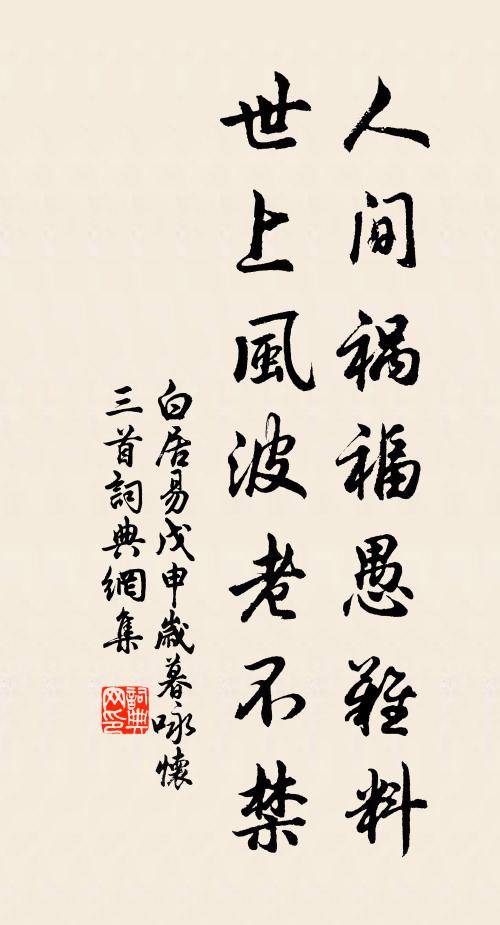 人间祸福愚難料
世上風波老不禁
白居易戊申歲暮咏懷
三首詞典網集
詞典
网印